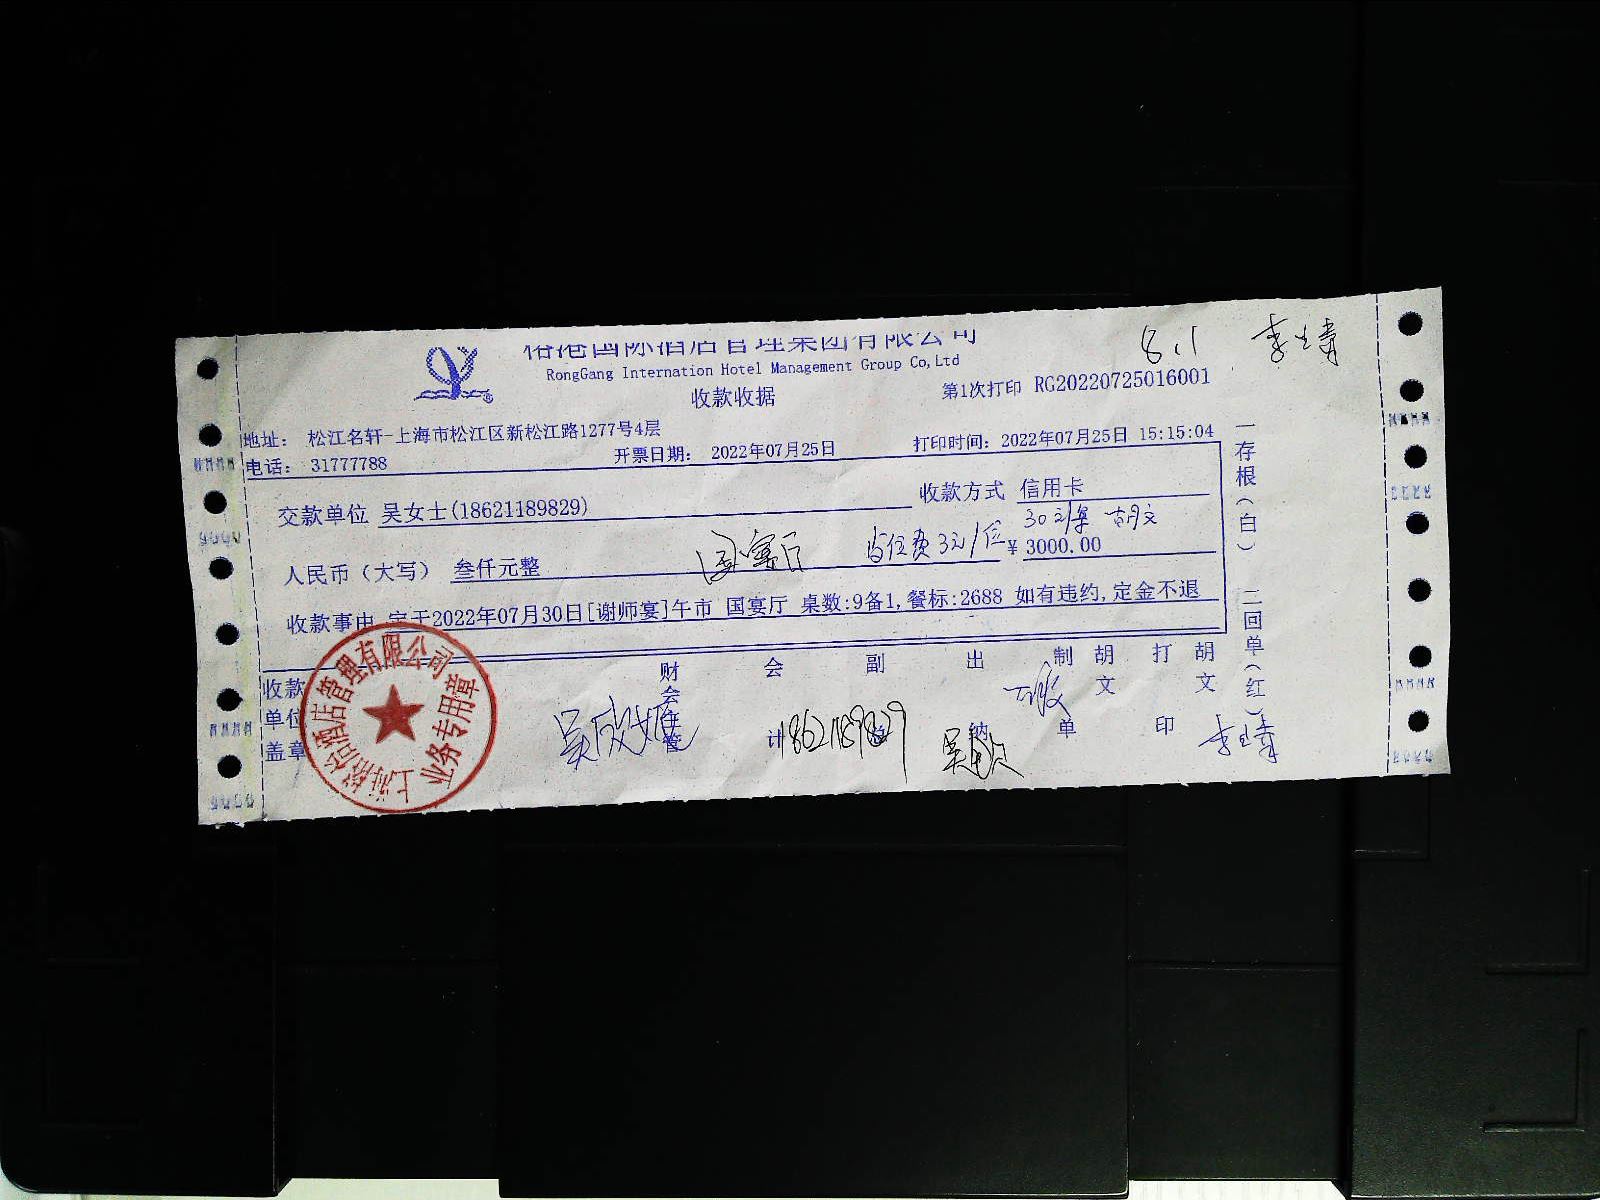 国际酒店管理集团有限公司
RongGang Internation Hotel Management Group Co,Ltd
8.1
收款收据
第1次打印 RG20220725016001
地址: 松江名轩-上海市松江区新松江路1277号4层
电话: 31777788
开票日期: 2022年07月25日
打印时间: 2022年07月25日 15:15:04
交款单位 吴女士(18621189829)
收款方式 信用卡
30元/桌 胡文
人民币(大写) 叁仟元整
国宴厅
占位费3元/位
¥ 3000.00
收款事由 定于2022年07月30日[谢师宴]午市 国宴厅 桌数:9备1,餐标:2688 如有违约,定金不退
一存根(白) 二回单(红)
收款单位盖章
财会主管
会计
副总
出纳
制单
胡文
打印
胡文
18621189829
有限公司
业务专用章